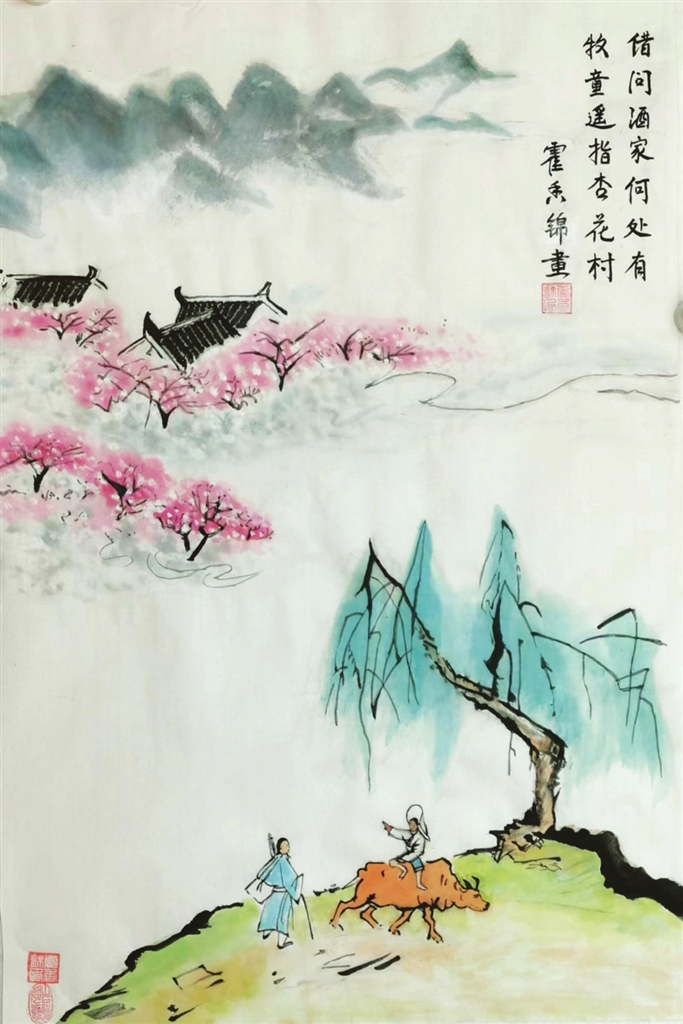 借问酒家何处有
牧童遥指杏花村
霍香锦画